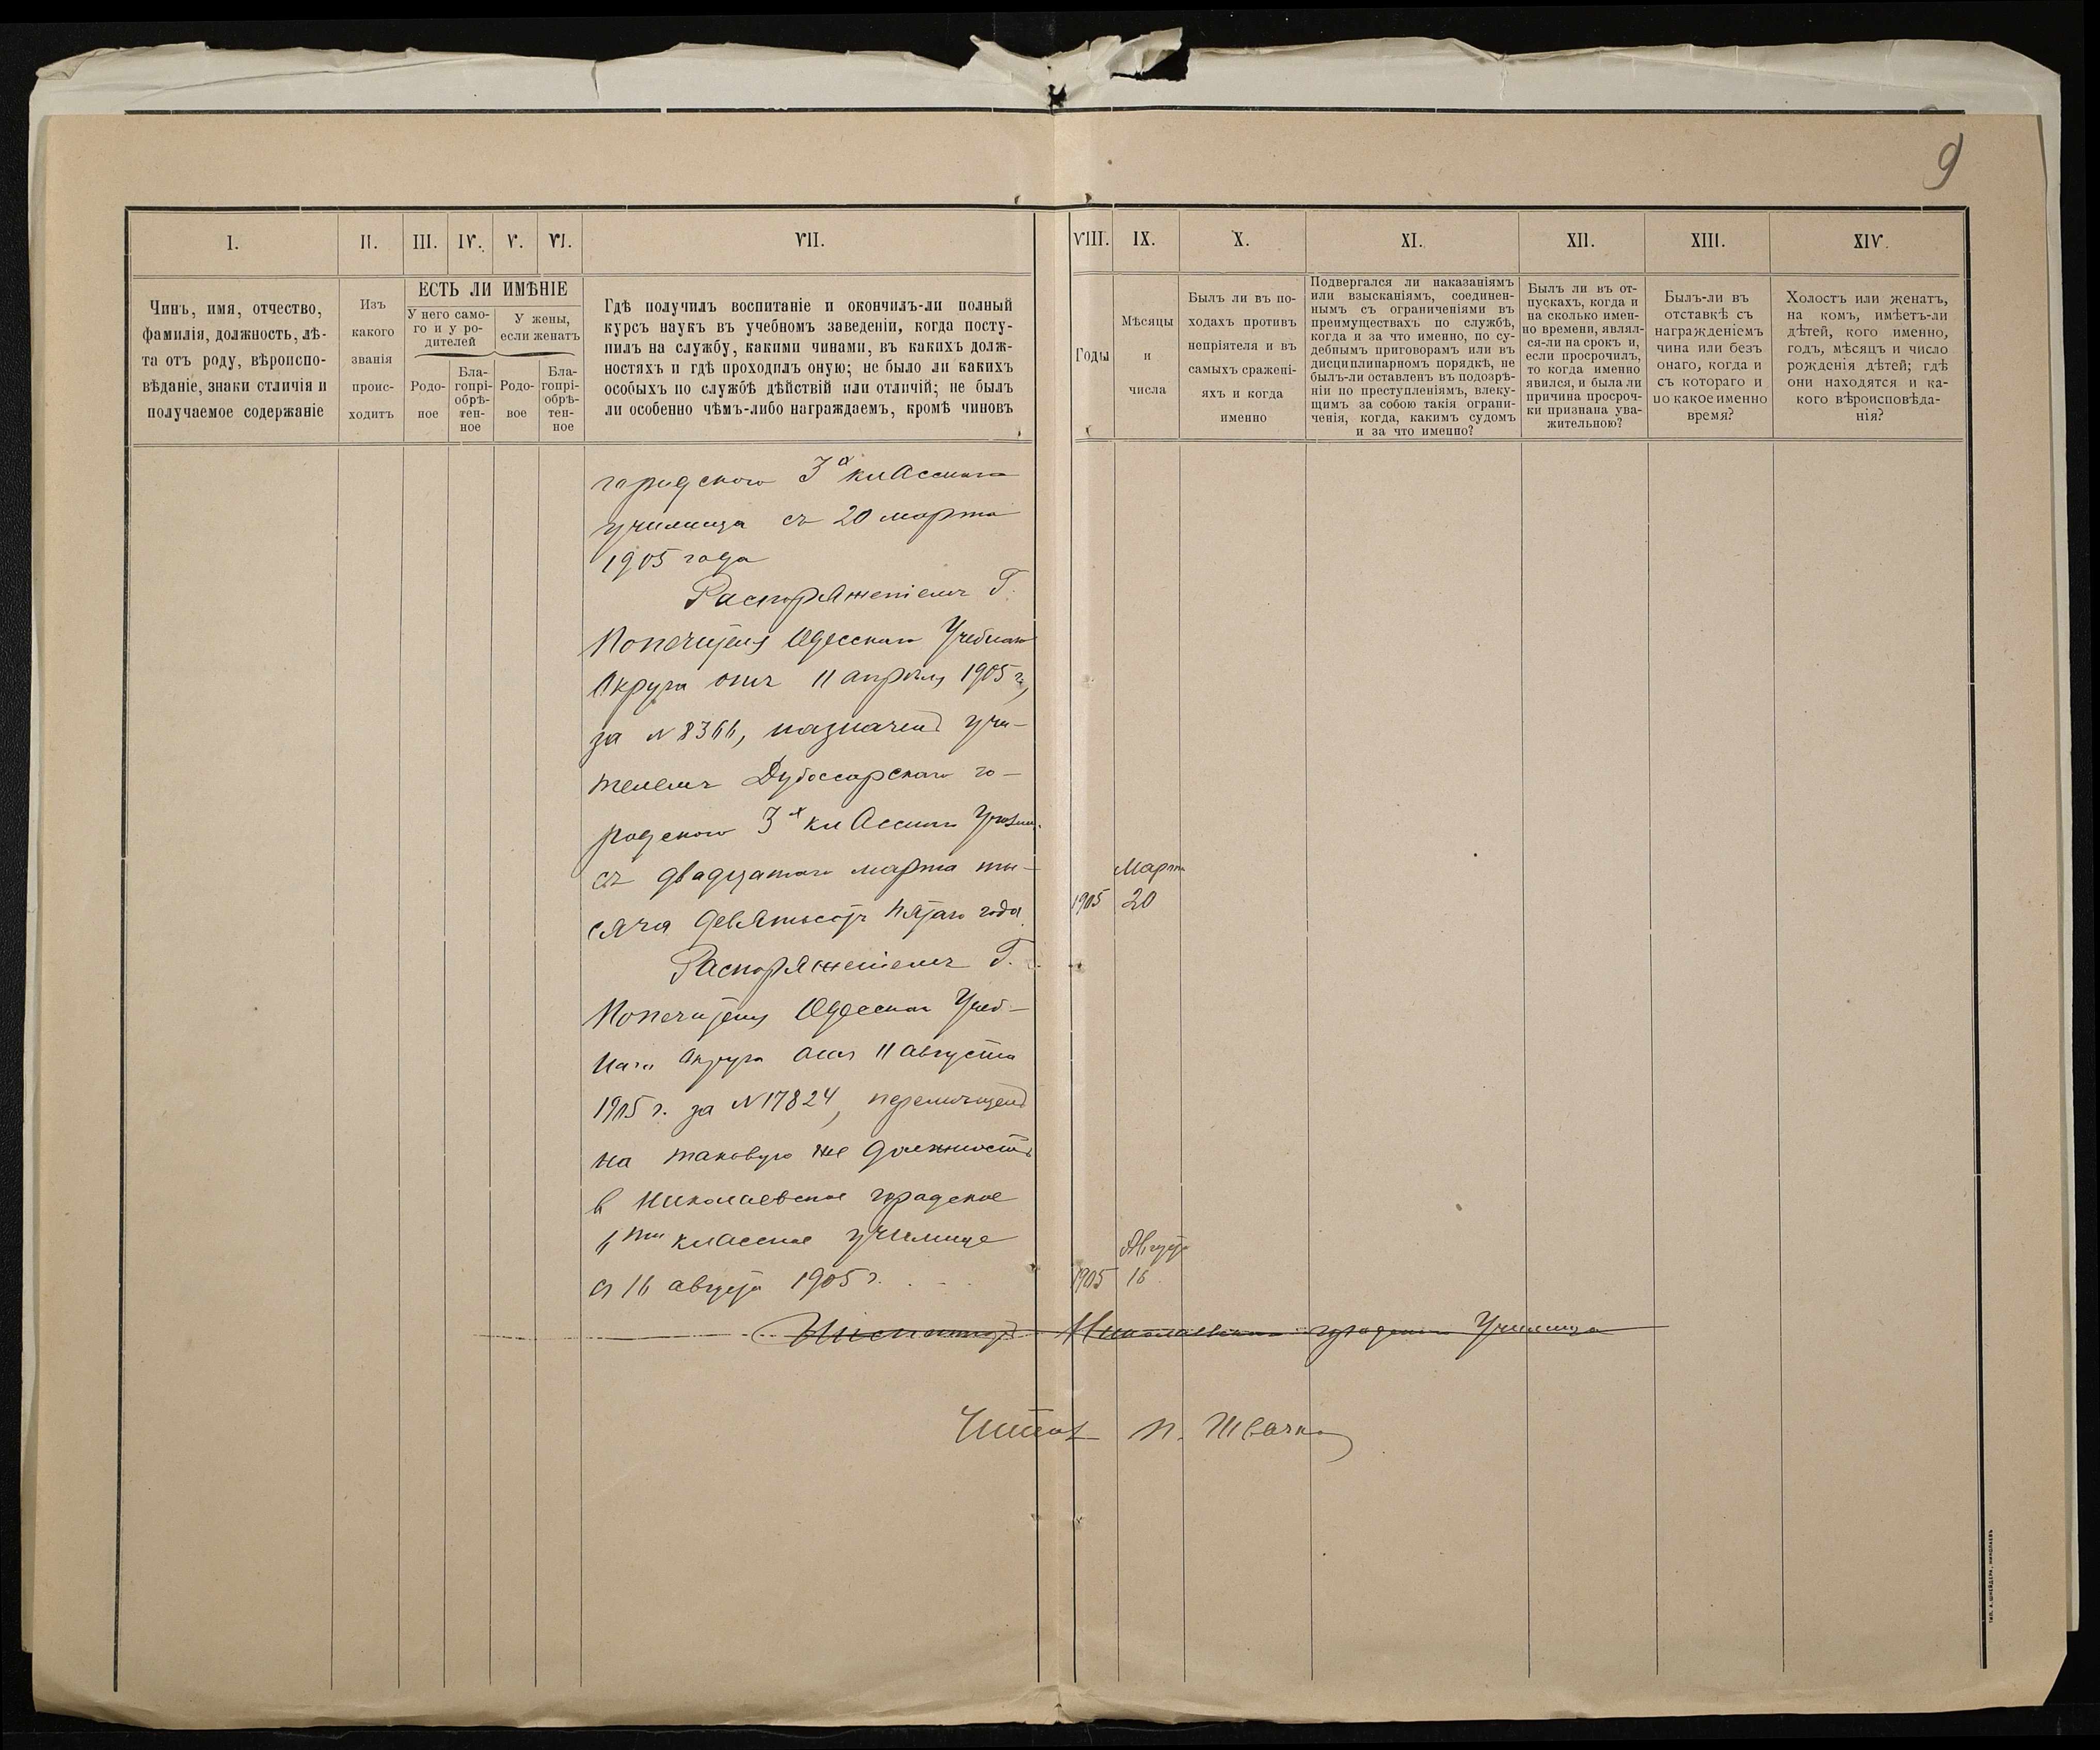 9
I.
II.
III.
IV.
V.
VI.
VII.
VIII.
IX.
X.
XI.
XII.
XIII.
XIV.
Чинъ, имя, отчество,
фамилія, должность, лѣ-
та отъ роду, вѣроиспо-
вѣданіе, знаки отличія и
получаемое содержаніе
Изъ
какого
званія
проис-
ходитъ
ЕСТЬ ЛИ ИМѢНІЕ
У него само-
го и у ро-
дителей
У жены,
если женатъ
Родо-
ное
Бла-
гопрі-
обрѣ-
тен-
ное
Родо-
вое
Бла-
гопрі-
обрѣ-
тен-
ное
Гдѣ получилъ воспитаніе и окончилъ-ли полный
курсъ наукъ въ учебномъ заведеніи, когда посту-
пилъ на службу, какими чинами, въ какихъ долж-
ностяхъ и гдѣ проходилъ оную; не было ли какихъ
особыхъ по службѣ дѣйствій или отличій; не былъ
ли особенно чѣмъ-либо награждаемъ, кромѣ чиновъ
Годы
Мѣсяцы
и
числа
Былъ ли въ по-
ходахъ противъ
непріятеля и въ
самыхъ сражені-
яхъ и когда
именно
Подвергался ли наказаніямъ
или взысканіямъ, соединен-
нымъ съ ограниченіями въ
преимуществахъ по службѣ,
когда и за что именно, по су-
дебнымъ приговорамъ или въ
дисциплинарномъ порядкѣ, не
былъ-ли оставленъ въ подозрѣ-
ніи по преступленіямъ, влеку-
щимъ за собою такія ограни-
ченія, когда, какимъ судомъ
и за что именно?
Былъ ли въ от-
пускахъ, когда и
на сколько имен-
но времени, являл-
ся-ли на срокъ и,
если просрочилъ,
то когда именно
явился, и была ли
причина просроч-
ки признана ува-
жительною?
Былъ-ли въ
отставкѣ съ
награжденіемъ
чина или безъ
онаго, когда и
съ котораго и
по какое именно
время?
Холостъ или женатъ,
на комъ, имѣетъ-ли
дѣтей, кого именно,
годъ, мѣсяцъ и число
рожденія дѣтей; гдѣ
они находятся и ка-
кого вѣроисповѣда-
нія?
городского 3х классного
училища съ 20 марта
1905 года
Распоряженіемъ Г.
Попечителя Одесскаго Учебнаго
Округа отъ 11 апрѣля 1905 г.,
за № 8366, назначенъ учи-
телемъ Дубоссарскаго го-
родского 3х классного Училищ.
съ двадцатаго марта ты-
сяча девятьсотъ пятаго года.
Мартъ
1905 20
Распоряженіемъ Г.
Попечителя Одесскаго Учеб-
наго Округа отъ 11 августа
1905 г. за № 17824, перемѣщенъ
на таковую же должность
въ Николаевское городское
6ти классное училище
съ 16 августа 1905 г.
Августа
1905 16
Инспекторъ Николаевскаго городского Училища
Читалъ П. Швачко
Тип. А. Шнейдера, Николаевъ